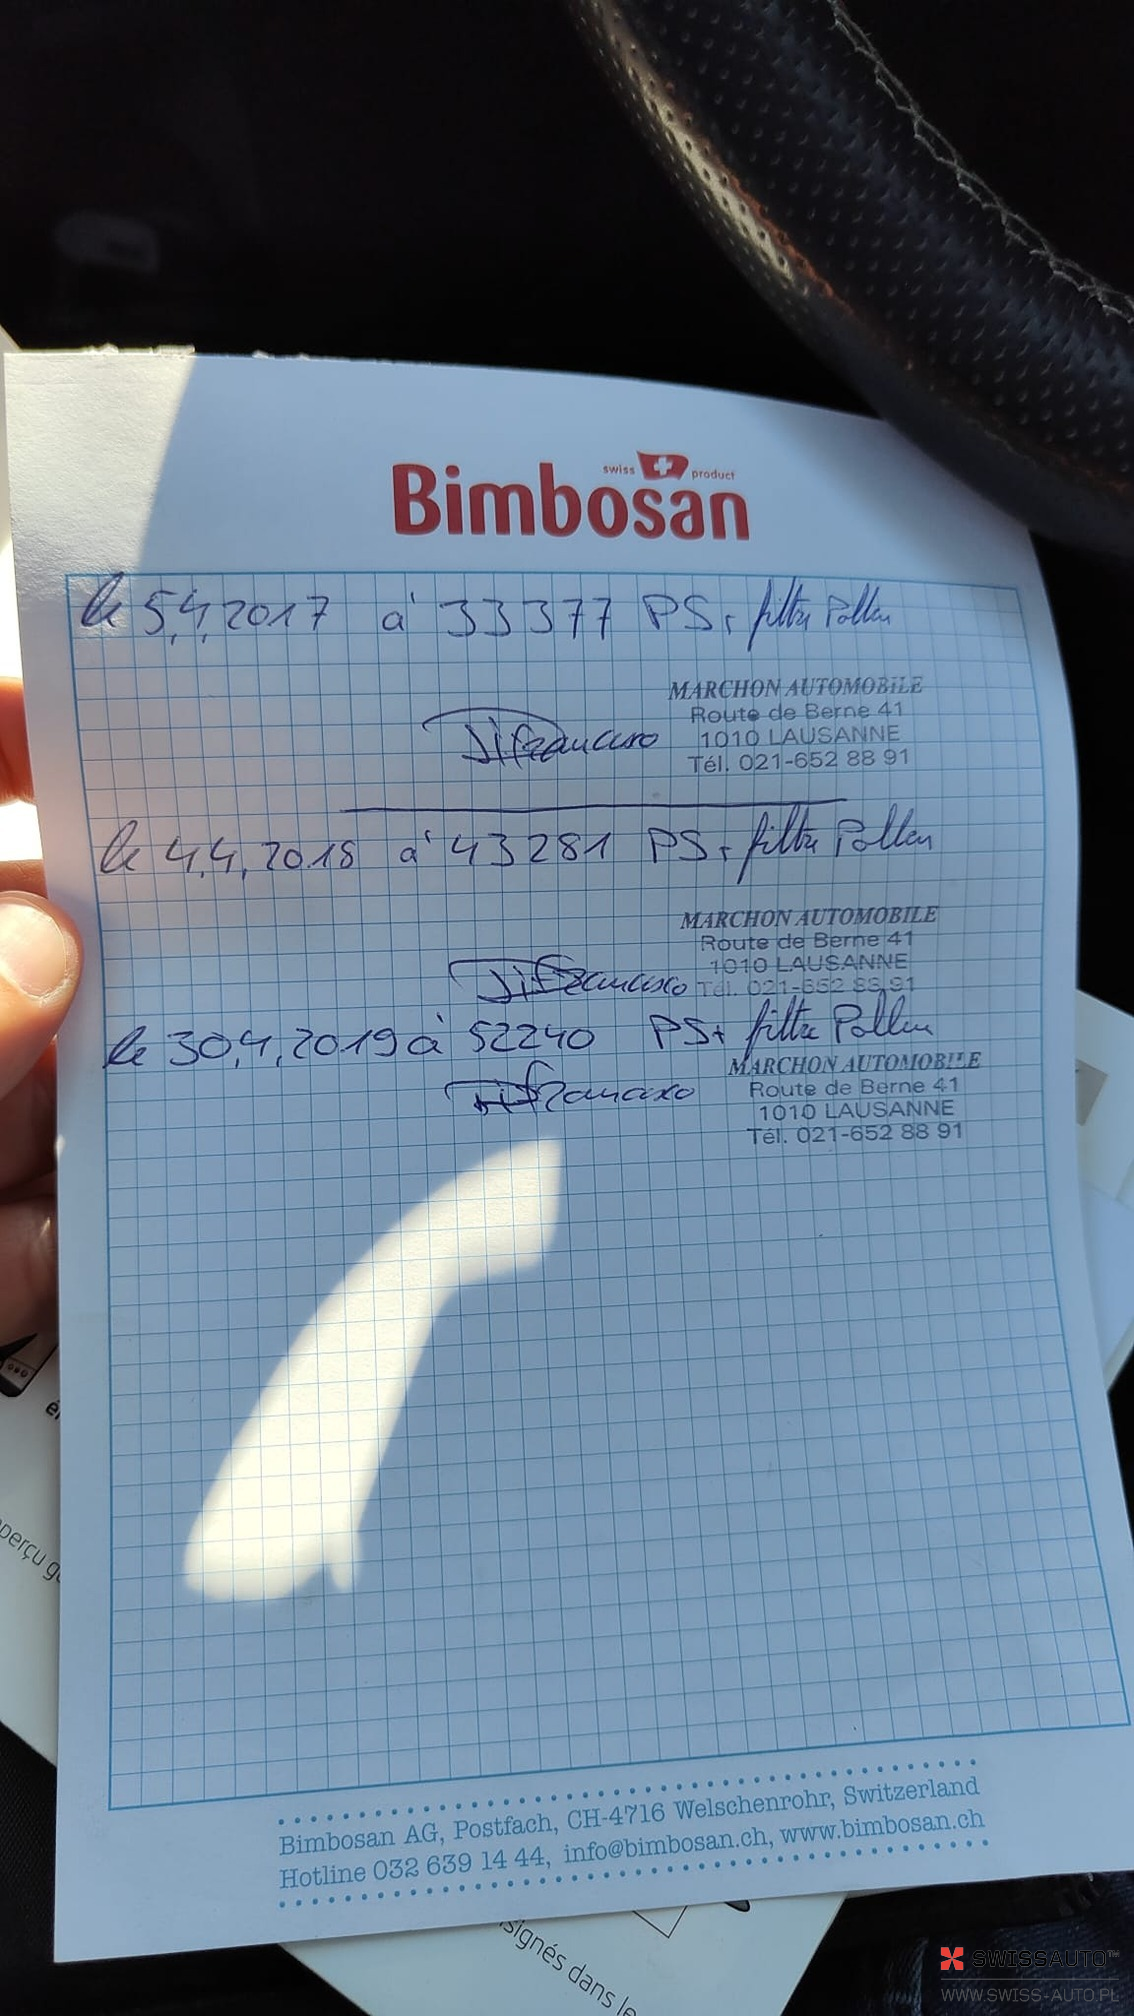 swiss product
Bimbosan
le 5.4.2017 à 33377 PS + filtre Pollen
MARCHON AUTOMOBILE
Route de Berne 41
1010 LAUSANNE
Tél. 021-652 88 91
le 4.4.2018 à 43281 PS + filtre Pollen
MARCHON AUTOMOBILE
Route de Berne 41
1010 LAUSANNE
Tél. 021-652 88 91
le 30.4.2019 à 52240 PS + filtre Pollen
MARCHON AUTOMOBILE
Route de Berne 41
1010 LAUSANNE
Tél. 021-652 88 91
Bimbosan AG, Postfach, CH-4716 Welschenrohr, Switzerland
Hotline 032 639 14 44, info@bimbosan.ch, www.bimbosan.ch
signés dans le
SWISSAUTO™
WWW.SWISS-AUTO.PL